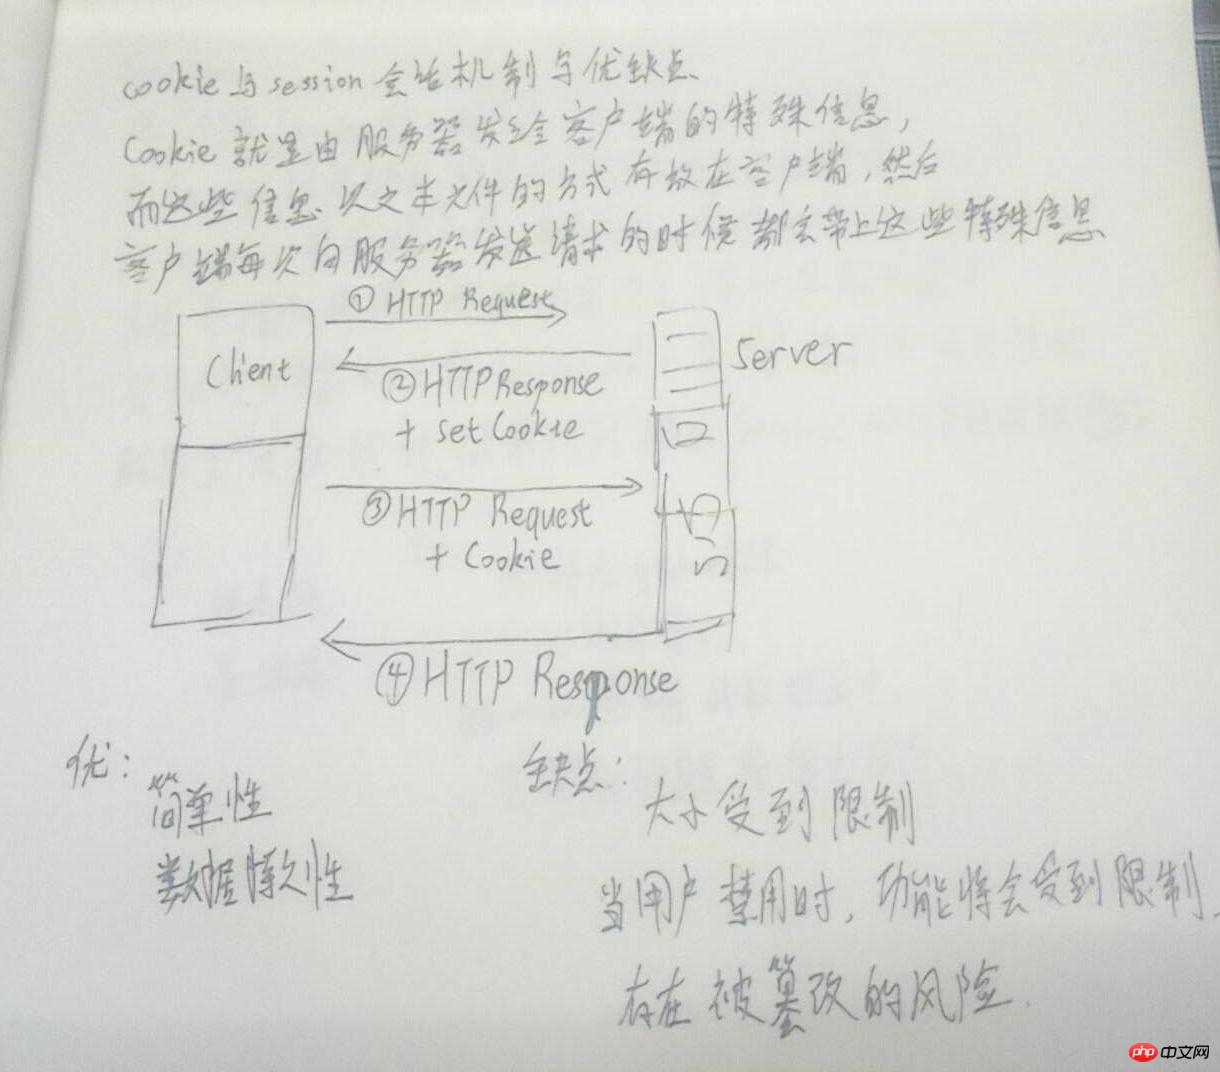 cookie与session会话机制与优缺点
Cookie就是由服务器发给客户端的特殊信息,
而这些信息以文本文件的方式存放在客户端,然后
客户端每次向服务器发送请求的时候都会带上这些特殊信息
① HTTP Request
Client
Server
② HTTP Response
+ setCookie
③ HTTP Request
+ Cookie
④ HTTP Response
优:
简单性
数据持久性
缺点:
大小受到限制
当用户禁用时,功能将会受到限制.
存在被篡改的风险.
php 中文网